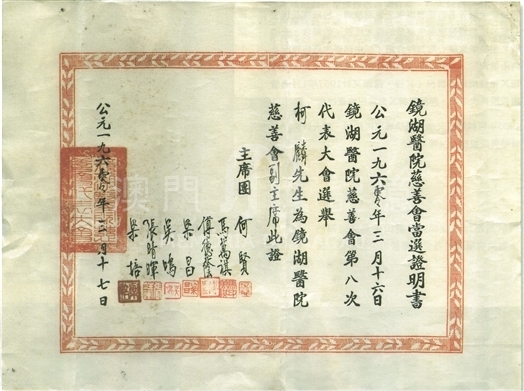 鏡湖醫院慈善會當選證明書
公元一九六零年三月十六日
鏡湖醫院慈善會第八次
代表大會選舉
柯麟先生為鏡湖醫院
慈善會副主席此證
主席團
何賢
馬萬祺
吳鳴
梁培
公元一九六零年三月十七日
澳門